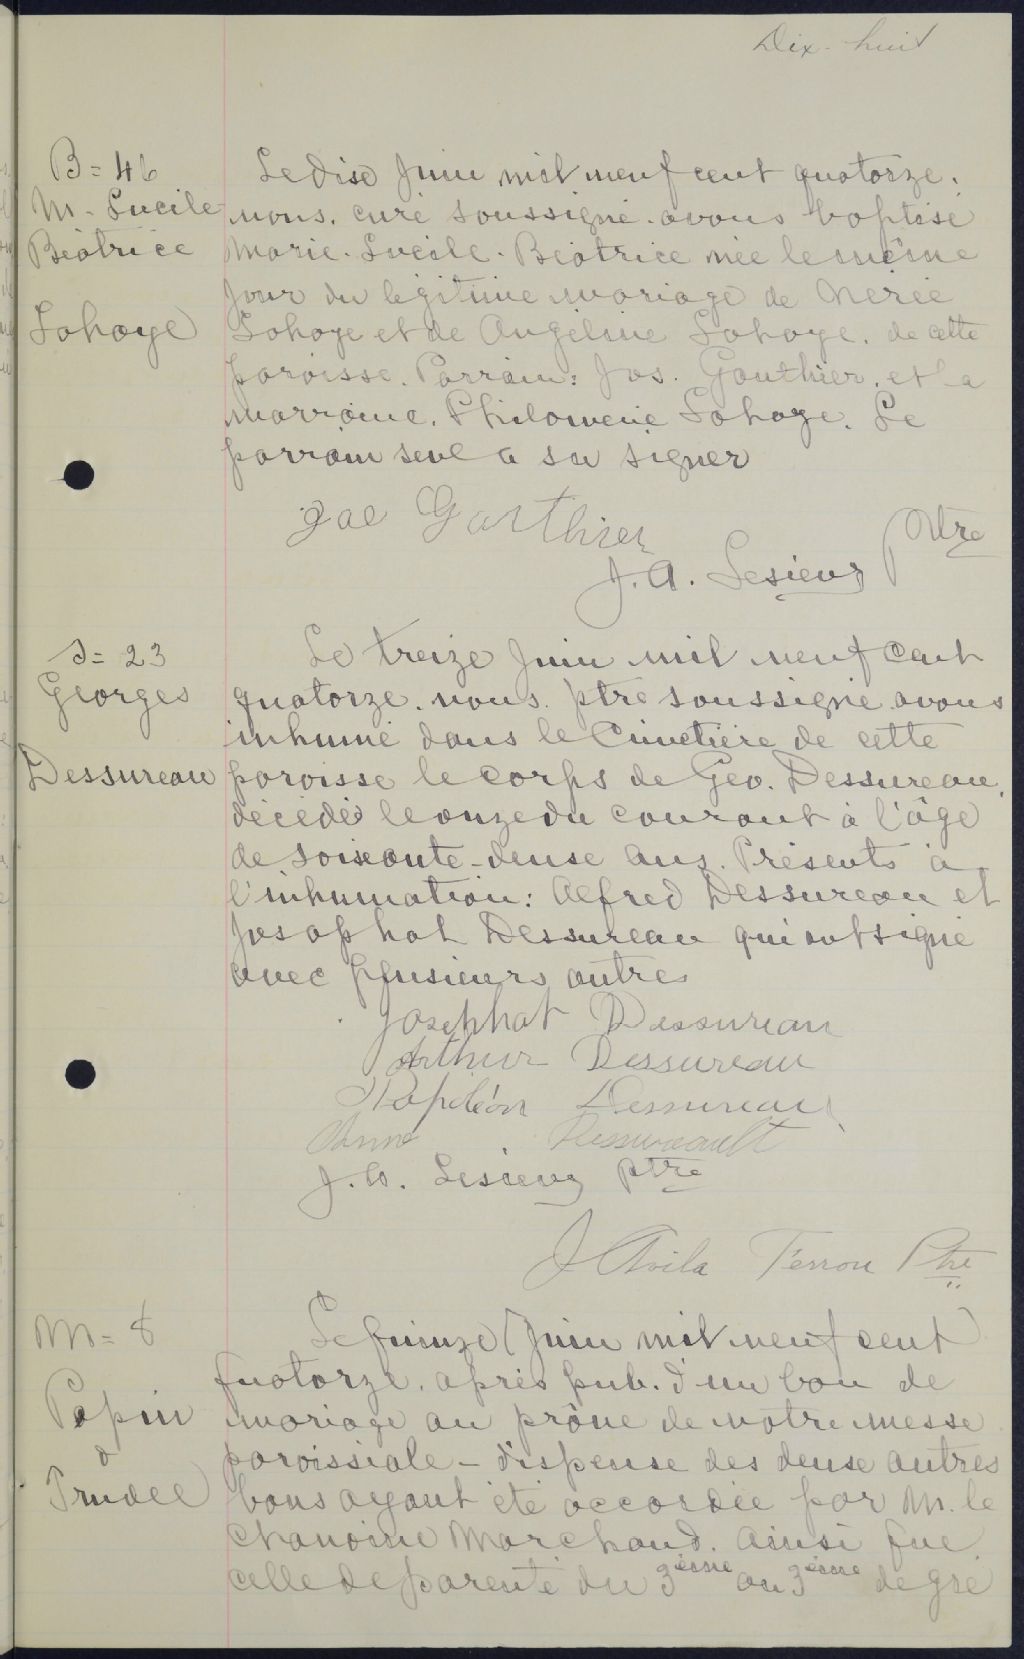 Dix-huit
B = 46
M. Lucile
Béatrice
Lahaye
Le dix Juin mil neuf cent quatorze,
nous, curé soussigné avons baptisé
Marie. Lucile. Béatrice née le même
jour du légitime mariage de Nérée
Lahaye et de Angéline Lahaye, de cette
paroisse. Parrain: Jos. Gauthier, et la
marraine, Philomène Lahaye. Le
parrain seul a su signer
Joe Gauthier
J. A. Lesieur Ptre
S = 23
Georges
Dessureau
Le treize Juin mil neuf cent
quatorze, nous, ptre soussigné avons
inhumé dans le Cimetière de cette
paroisse le corps de Geo. Dessureau,
décédé le onze du courant à l'âge
de soixante-deux ans. Présents à
l'inhumation: Alfred Dessureau et
Josaphat Dessureau qui ont signé
avec plusieurs autres
Josephat Dessureau
Arthur Dessureau
Napoléon Dessureau
Dessureault
J. A. Lesieur ptre
J Avila Ptre
M = 8
Papin
&
Trudel
Le quinze Juin mil neuf cent
quatorze, après pub. d'un ban de
mariage au prône de notre messe
paroissiale - dispense des deux autres
bans ayant été accordée par M. le
Chanoine Marchand, ainsi que
celle de parenté du 3ième au 3ième degré